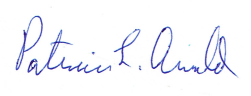 Patricia L. Arnold